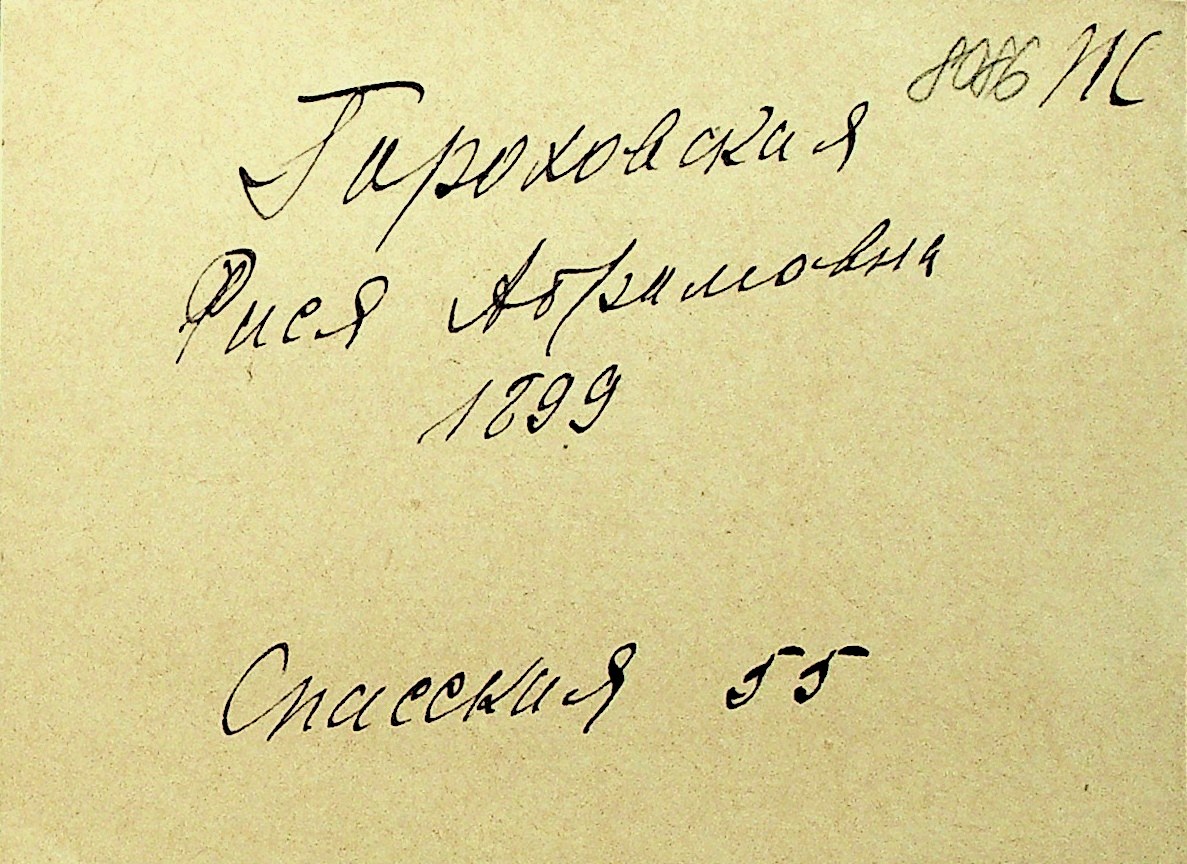 Гороховская
Рися Абрамовна
1899
Спасская 55